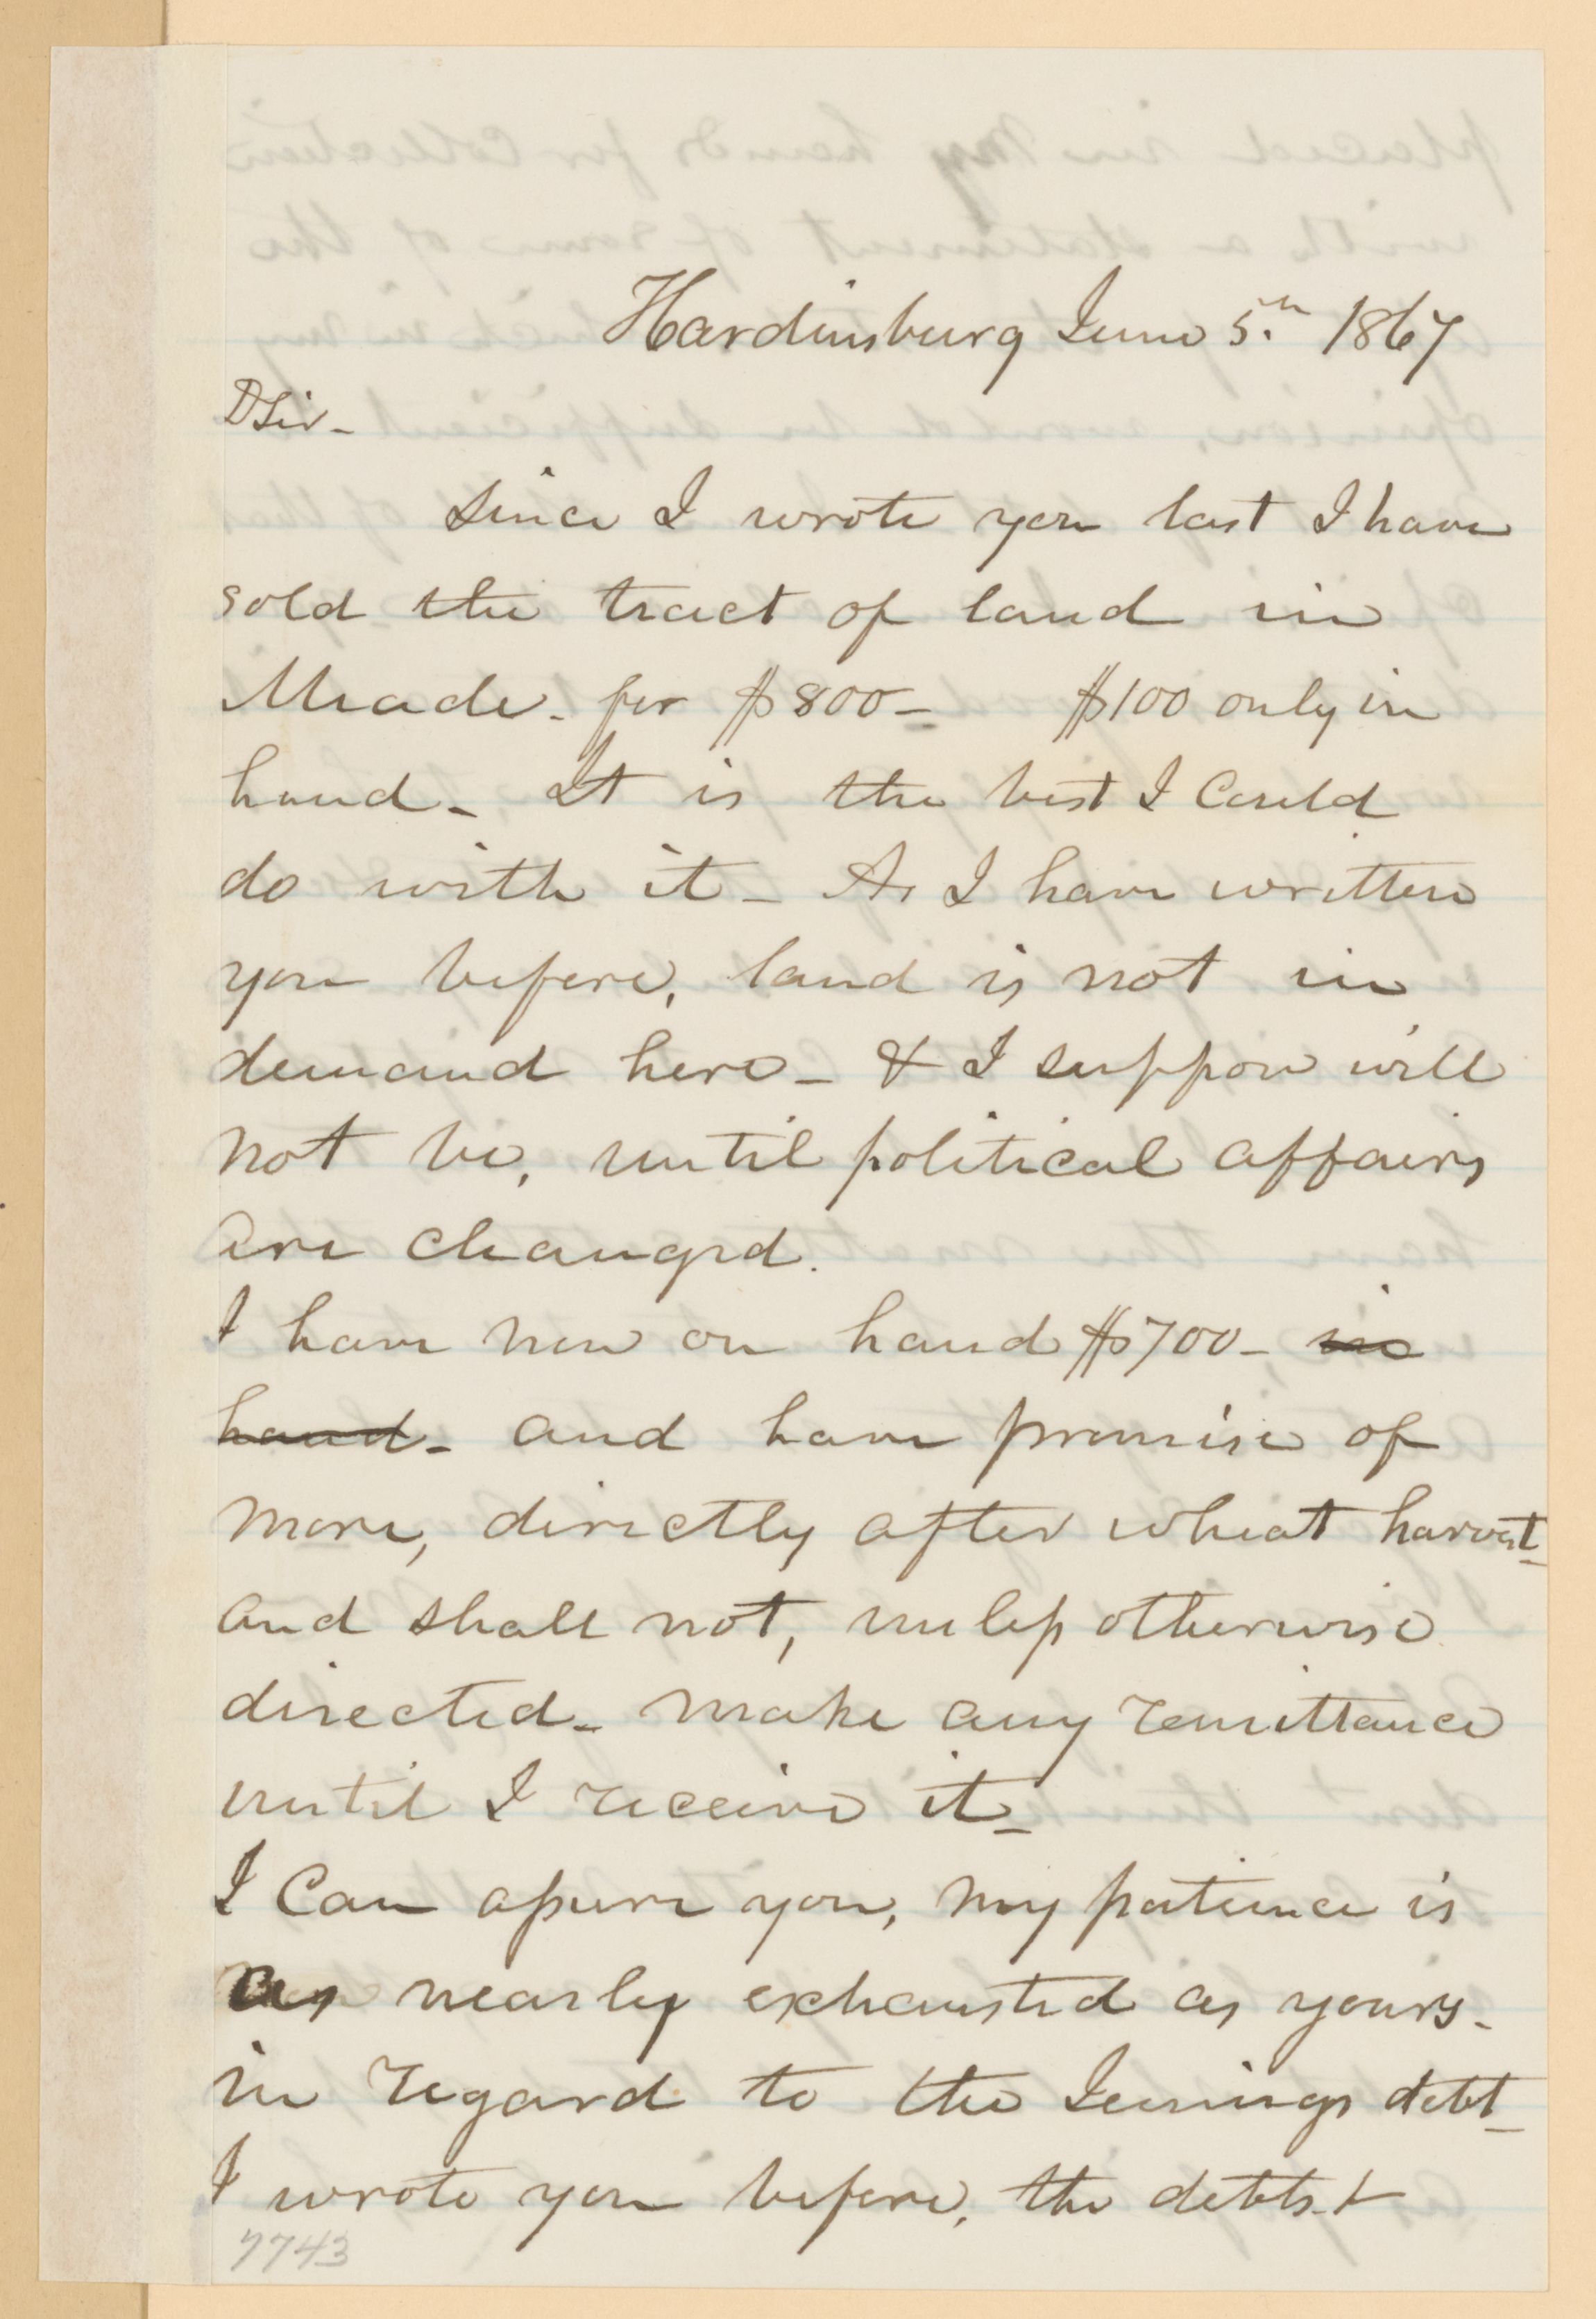 Hardinsburg June 5th 1867
DSir -
Since I wrote you last I have
sold the tract of land in
Meade - for $800 - $100 only in
hand - It is the best I could
do with it - As I have written
you before, land is not in
demand here - & I suppose will
not be, until political affairs
are changed.
I have now on hand $700 - in
hand - and have promise of
more, directly after wheat harvest -
and shall not, unless otherwise
directed - make any remittance
until I receive it -
I Can assure you, my patience is
as nearly exhausted as yours -
in regard to the Jennings debt -
I wrote you before, the debts &
7743